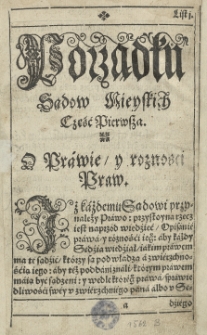 List j.
Porządku
Sądow Mieyskich
Część Pierwsza.
O Práwie / y roznośći
Praw.
IZ káżdemu Sądowi przy-
należy Práwo: przystoyna rzecz
iest naprzod wiedzieć / Opisánie
práwá y roznośći iego: áby káżdy
Sędzia wiedział / iákim práwem
ma ie sądźić / ktorzy są pod władzą á zwierzchno-
śćią iego: áby też poddáni ználi ktorym práwem
máią być sądzeni: y wedle ktorego práwá / spráwie-
dliwośći swey v zwierzchniego páná álbo v Sę-
a
dziego